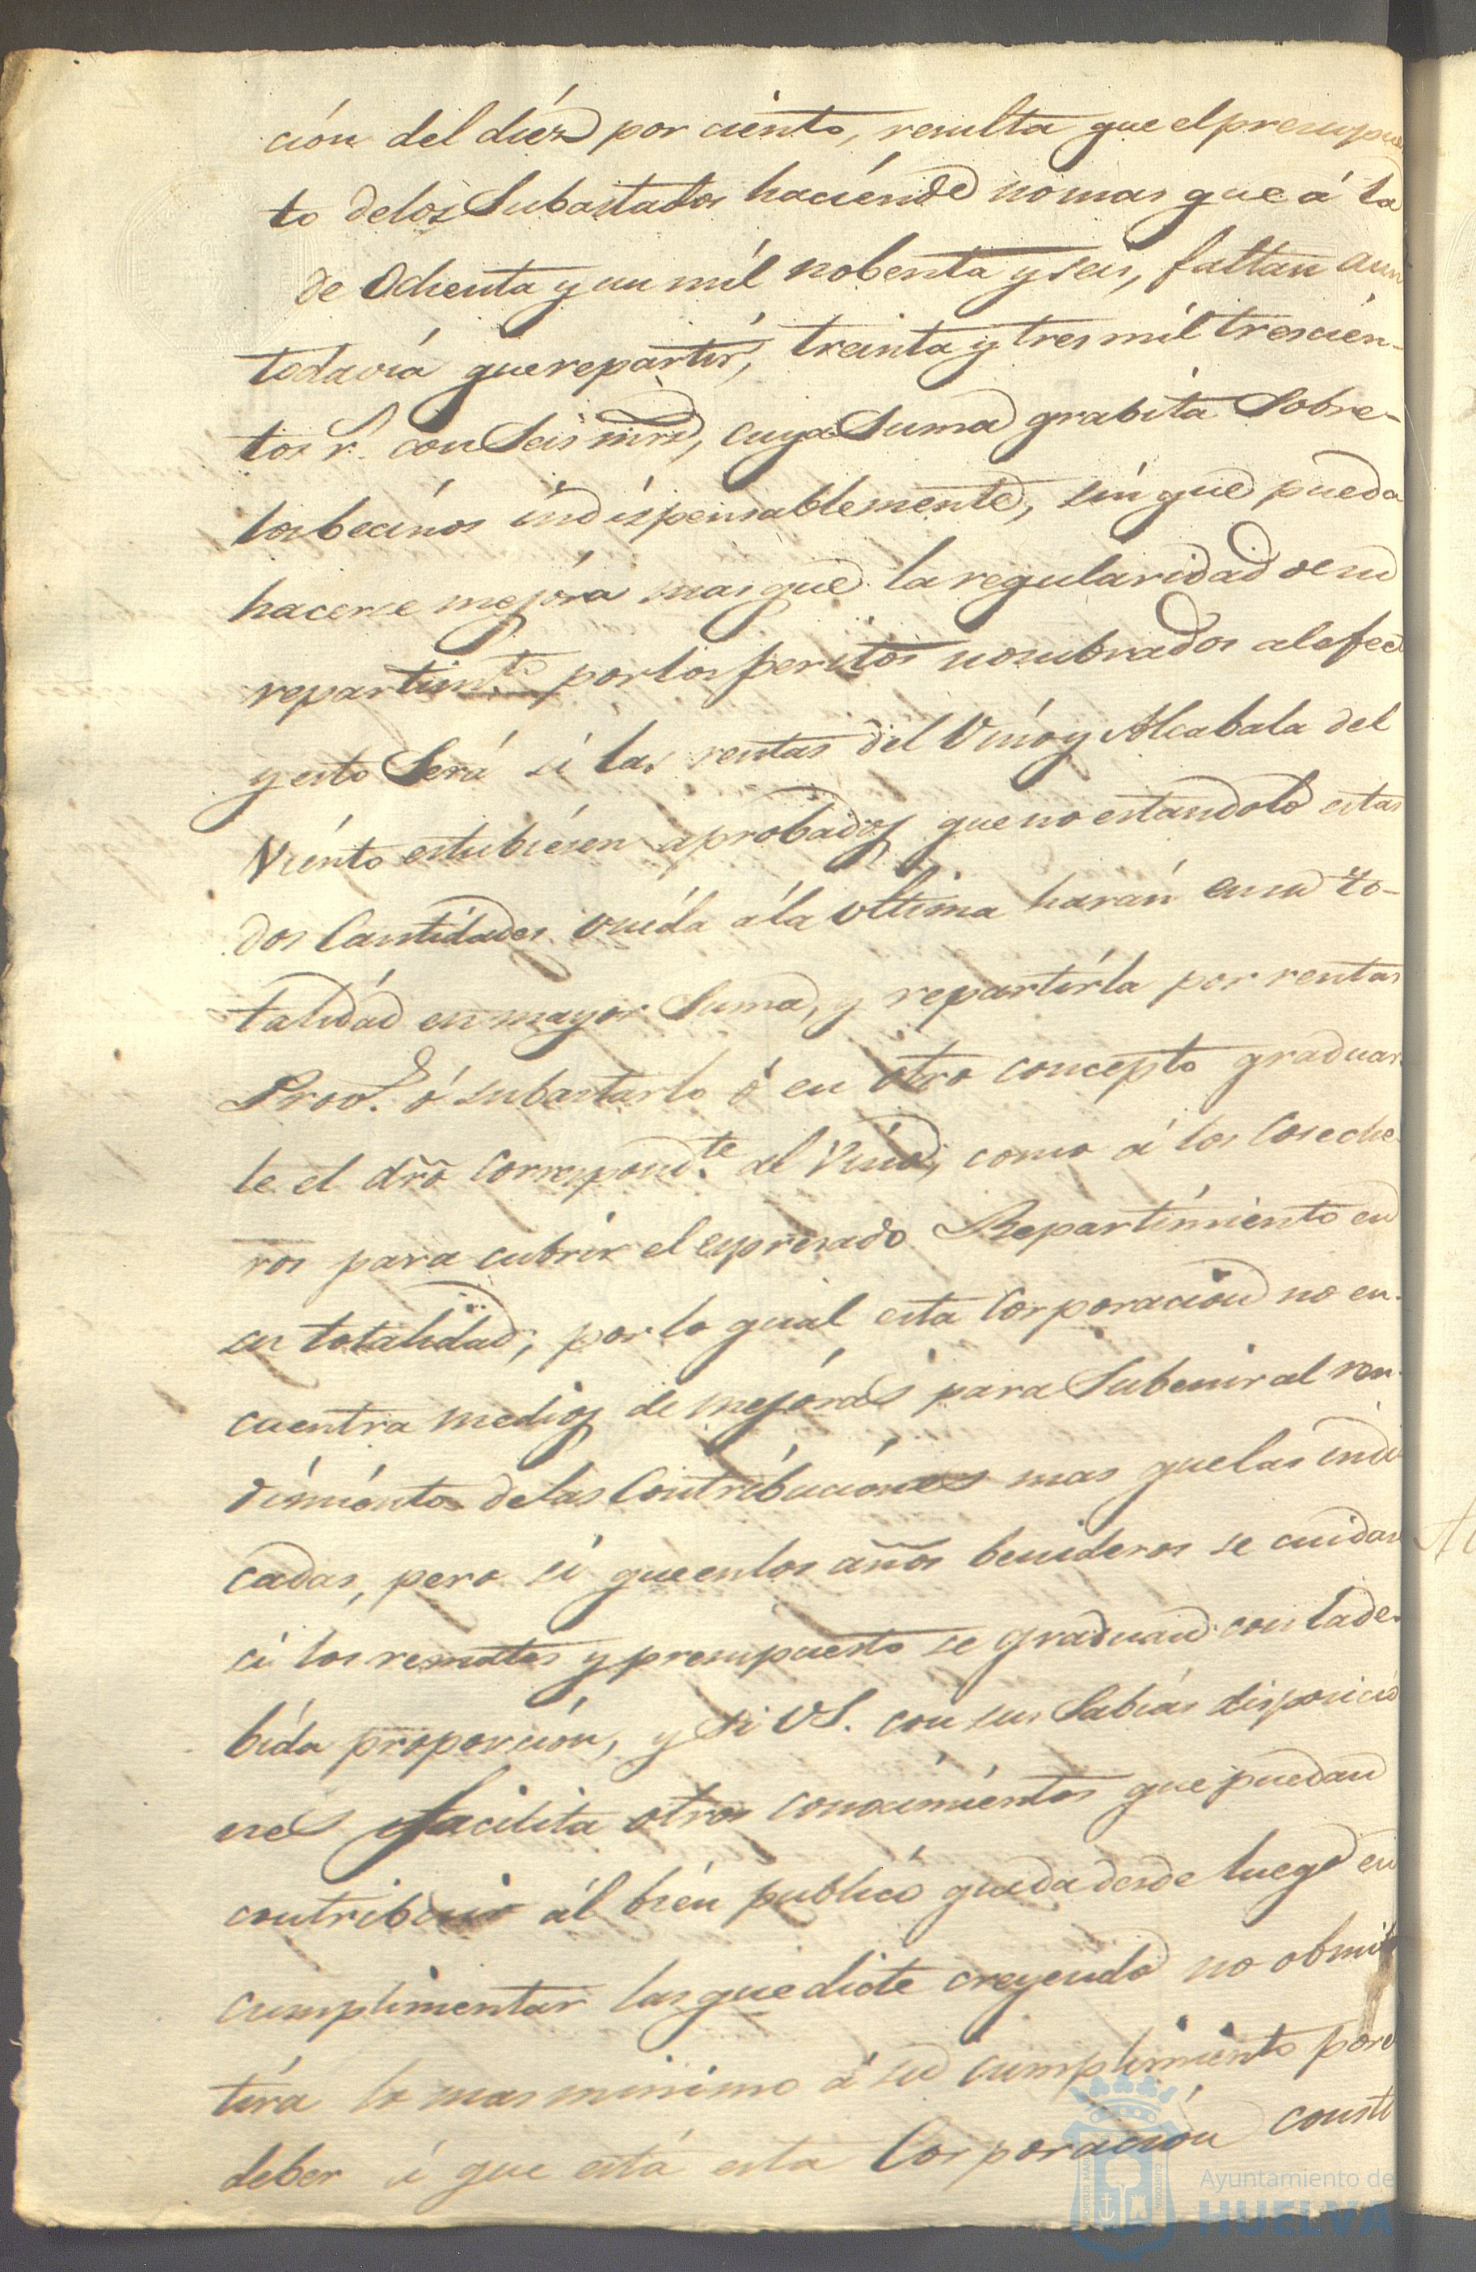 ción del diéz por ciento, resulta que el presupues
to delos Subastados haciénde no mas que á la
de Ochenta y un mil nobenta y seis, faltan aun
todavía que repartír, treinta y tres mil trescién-
tos r.s con Seis mrs, cuya Suma grabita Sobre-
los becínos indíspensablemente, sin que pueda
hacerse mejóra mas que la regularidad de su
repartim.to por los peritos nombrados al efecto
y esto Será si las rentas del Vino y Alcabala del
Viénto estubiésen aprobados que no estandolo estas
dos Cantídades unída á la ultima harán en su to-
talidád en mayor Suma, y repartírla por rentas
Prov.s ó subastarlo ó en otro concepto graduar
le el dro correspond.te al Víno, como á los Coseche
ros para cubrir el espresado Repartímiento en
su totalidad, por lo qual esta Corporacion no en-
cuentra medios de mejóras para Subenir al ren-
dimiénto delas Contríbuciónes mas que las indi
cadas, pero si que en los años benideros se cuidará
si los remates y presupuesto se graduan con la de-
bída proporción, y si VS. con sus Sabías disposicio
nes facilita otros conocimiéntos que puedan
contribuir ál bién publicó queda desde luego en
cumplimentar las que dicte creyendo no obmi
tira lo mas minimo á su cumplimiento por el
deber á que está esta Corporación consti
Ayuntamiento de
HUELVA